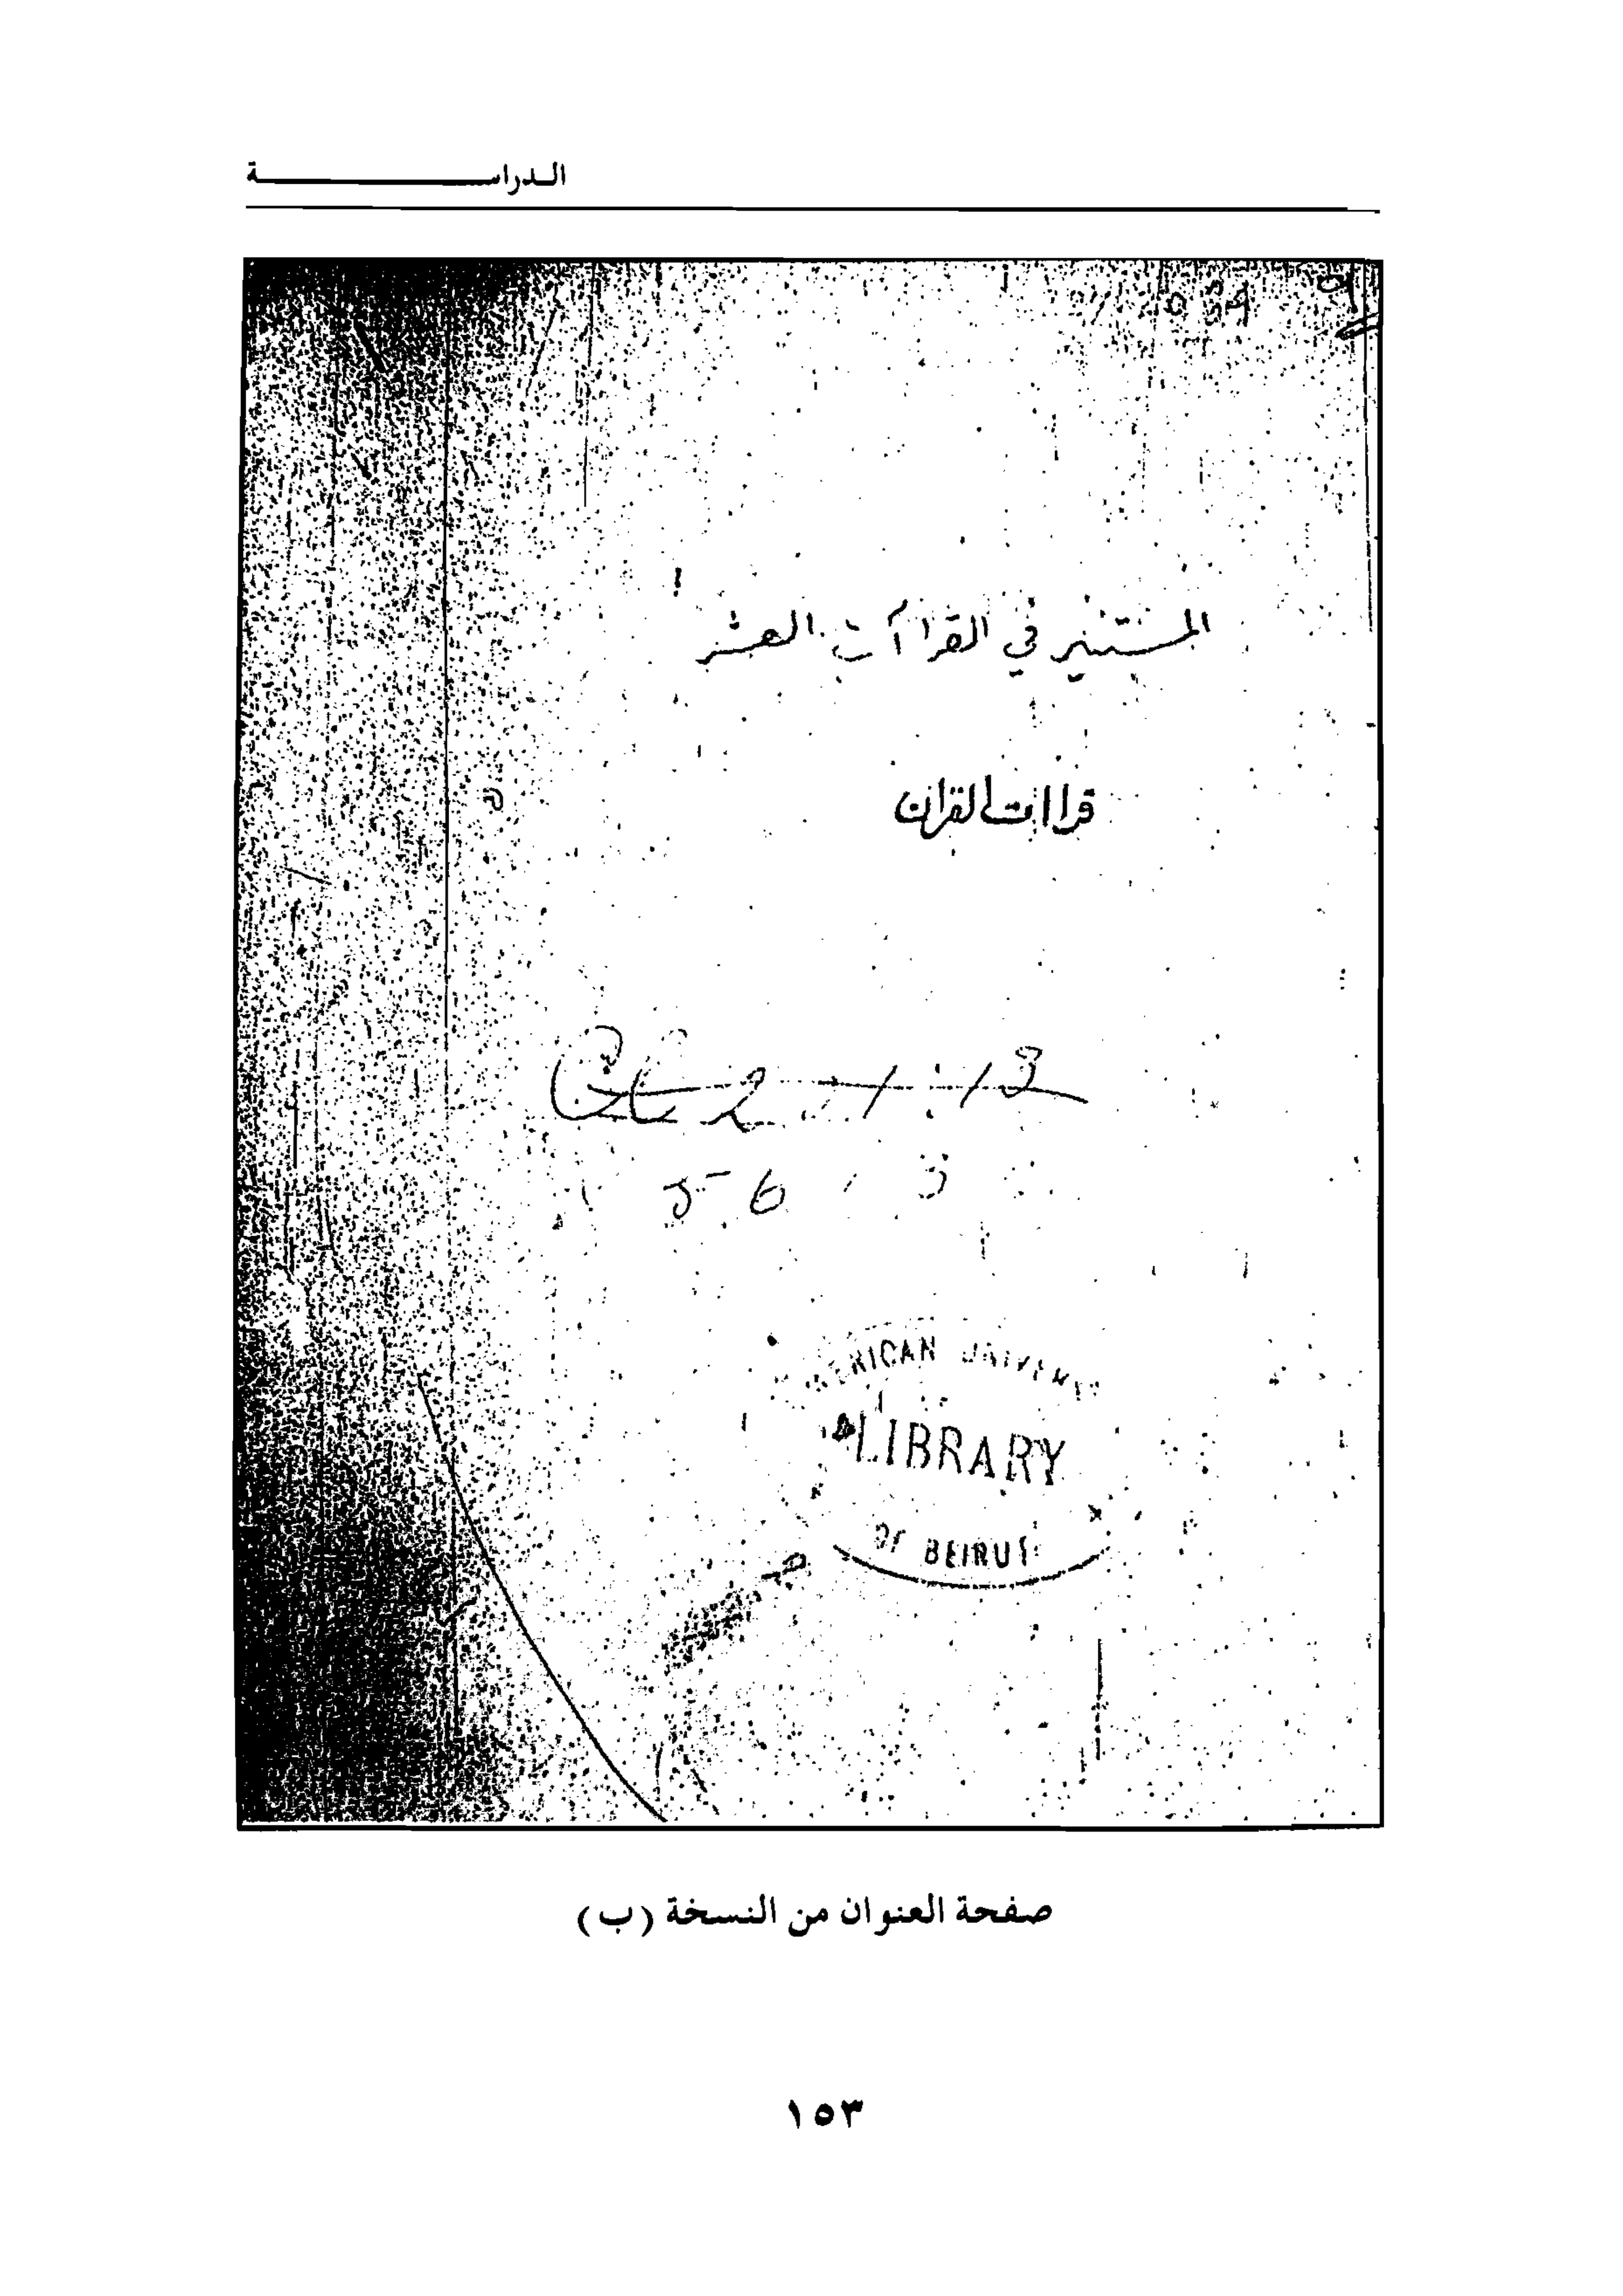 الدراسة
المستنير في القراآت العشر
قراات القران
AMERICAN UNIVERSITY
LIBRARY
OF BEIRUT
صفحة العنوان من النسخة (ب)
١٥٣